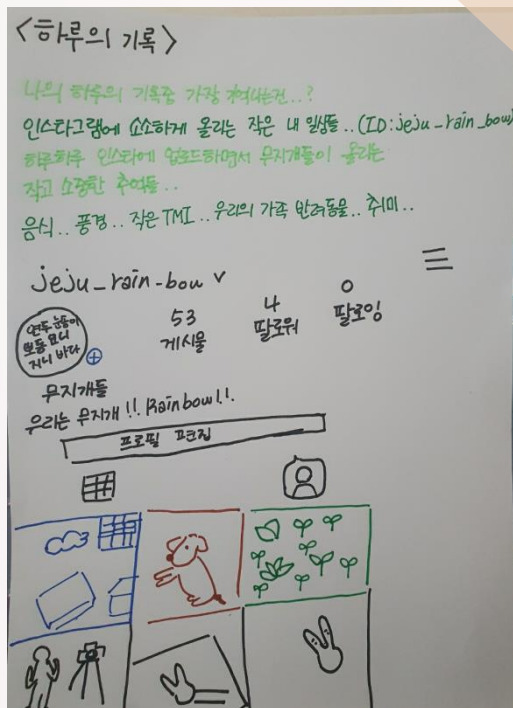 <하루의 기록>
나의 하루의 기록중 가장 기억나는건..?
인스타그램에 소소하게 올리는 작은 내 일상들..(ID:jeju_rain_bow)
하루하루 인스타에 업로드하면서 무지개들이 올리는
작고 소중한 추억들..
음식.. 풍경.. 작은 TMI.. 우리의 가족 반려동물.. 취미..
jeju_rain-bow ∨
53 4 0
게시물 팔로워 팔로잉
연두 눈송이
뽀동 요니
지니 바다
무지개들
우리는 무지개!! Rainbow!!
프로필 편집